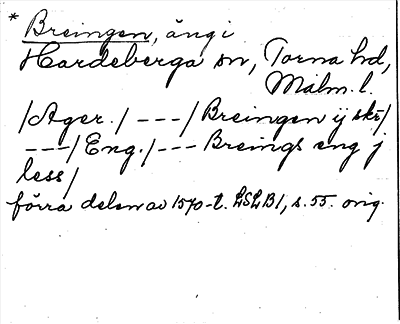 * Breingen, äng i
Hardeberga sn, Torna hd,
Malm. l.
/Ager./ --- / Breingen ij skr/
---/ Eng./ --- Breings eng j
less/
förra delen av 1570-t. LSLB1, s. 55. orig.